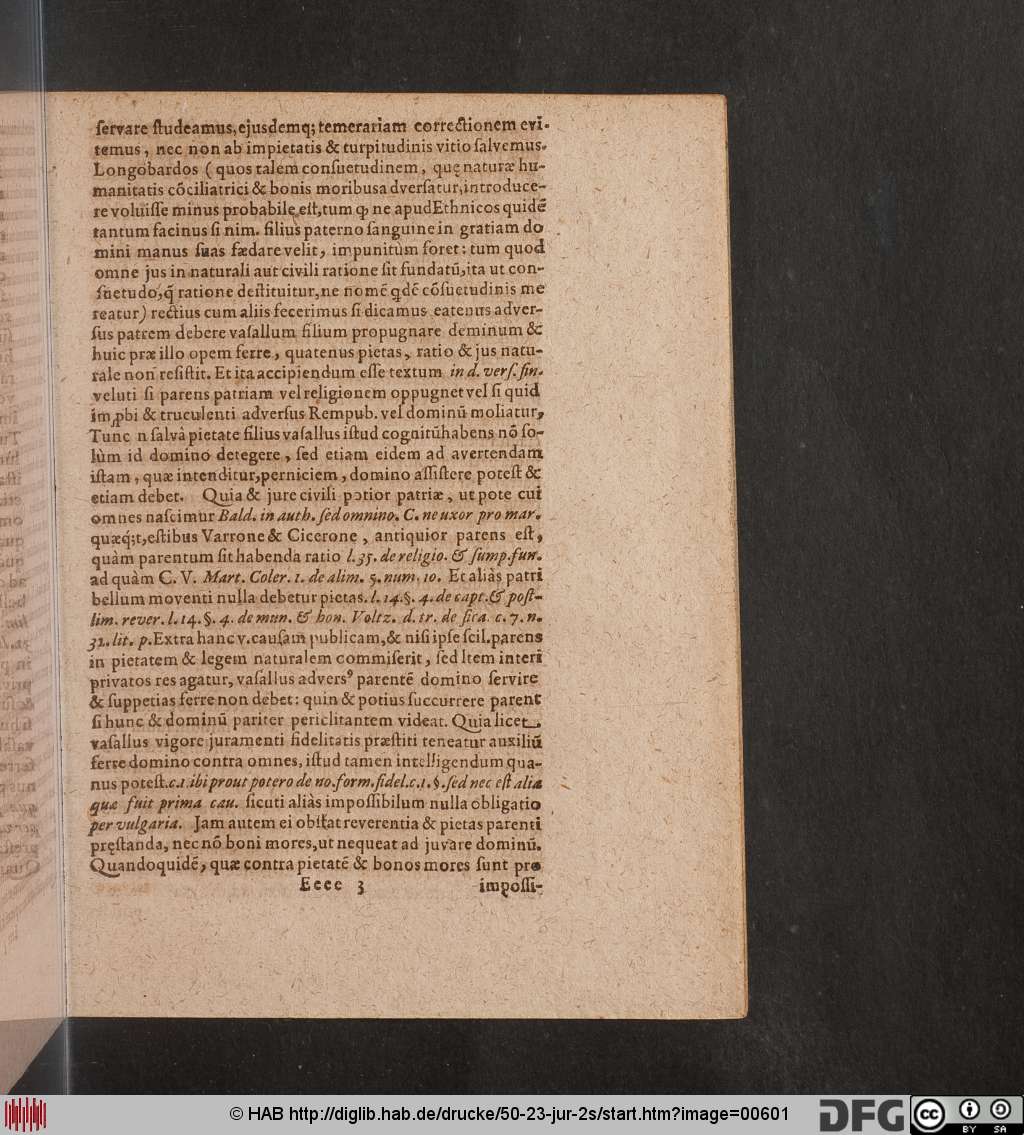 ſervare ſtudeamus, ejusdemq; temerariam correctionem evi-
temus, nec non ab impietatis & turpitudinis vitio ſalvemus.
Longobardos ( quos talem conſuetudinem, quę naturæ hu-
manitatis cõciliatrici & bonis moribus adverſatur, introduce-
re voluiſſe minus probabile eſt, tum ꝙ ne apud Ethnicos quidẽ
tantum facinus ſi nim. filius paterno ſanguine in gratiam do
mini manus ſuas fædare velit, impunitùm foret: tum quod
omne jus in naturali aut civili ratione ſit fundatũ, ita ut con-
ſuetudo, q̃ ratione deſtituitur, ne nomẽ qdẽ cõſuetudinis me
reatur) rectius cum aliis fecerimus ſi dicamus eatenus adver-
ſus patrem debere vaſallum filium propugnare deminum &
huic præ illo opem ferre, quatenus pietas, ratio & jus natu-
rale non reſiſtit. Et ita accipiendum eſſe textum in d. verſ. fin.
veluti ſi parens patriam vel religionem oppugnet vel ſi quid
imꝓbi & truculenti adverſus Rempub. vel dominũ moliatur,
Tunc n ſalvà pietate filius vaſallus iſtud cognitũ habens nõ ſo-
lùm id domino detegere, ſed etiam eidem ad avertendam
iſtam, quæ intenditur, perniciem, domino aſſiſtere poteſt &
etiam debet. Quia & jure civili potior patriæ, ut pote cui
omnes naſcimur Bald. in auth. ſed omnino. C. ne uxor pro mar.
quæq; t, eſtibus Varrone & Cicerone, antiquior parens eſt,
quàm parentum ſit habenda ratio l. 35. de religio. & ſump. fun.
ad quàm C. V. Mart. Coler. 1. de alim. 5. num. 10. Et aliàs patri
bellum moventi nulla debetur pietas. l. 14. §. 4. de capt. & poſt-
lim. rever. l. 14. §. 4. de mun. & hon. Voltz. d. tr. de fica. c. 7. n.
32. lit. p. Extra hanc v. cauſam publicam, & niſi ipſe ſcil. parens
in pietatem & legem naturalem commiſerit, ſed ltem interi
privatos res agatur, vaſallus adversꝰ parentẽ domino ſervire
& ſuppetias ferre non debet: quin & potius ſuccurrere parent
ſi hunc & dominũ pariter periclitantem videat. Quia licet
vaſallus vigore juramenti fidelitatis præſtiti teneatur auxiliũ
ferre domino contra omnes, iſtud tamen intelligendum qua-
nus poteſt. c. 1 ibi prout potero de no. form. fidel. c. 1. §. ſed nec eſt alia
quæ fuit prima cau. ſicuti aliàs impoſſibilum nulla obligatio
per vulgaria. Jam autem ei obſtat reverentia & pietas parenti
pręſtanda, nec nõ boni mores, ut nequeat ad juvare dominũ.
Quandoquidẽ, quæ contra pietatẽ & bonos mores ſunt pro
Eeee 3 impoſſi-
© HAB http://diglib.hab.de/drucke/50-23-jur-2s/start.htm?image=00601
DFG cc BY SA